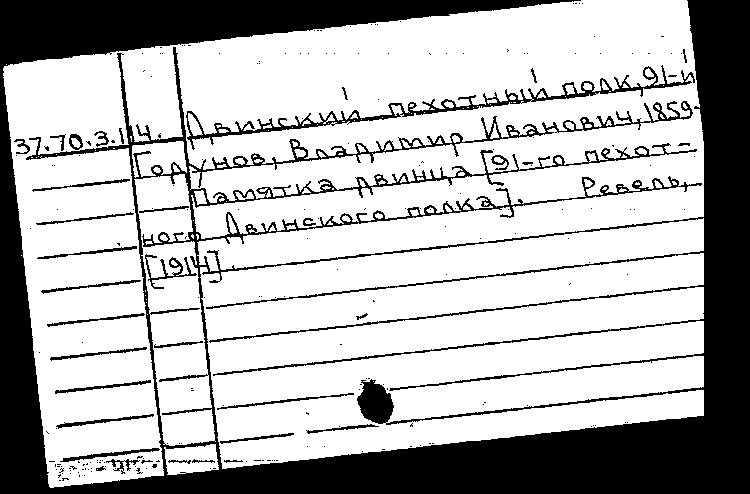 Двинский пехотный полк, 91-й
37.70.3.114.
Годунов, Владимир Иванович, 1859-
Памятка двинца [91-го пехот-
ного Двинского полка]. Ревель,
[1914].